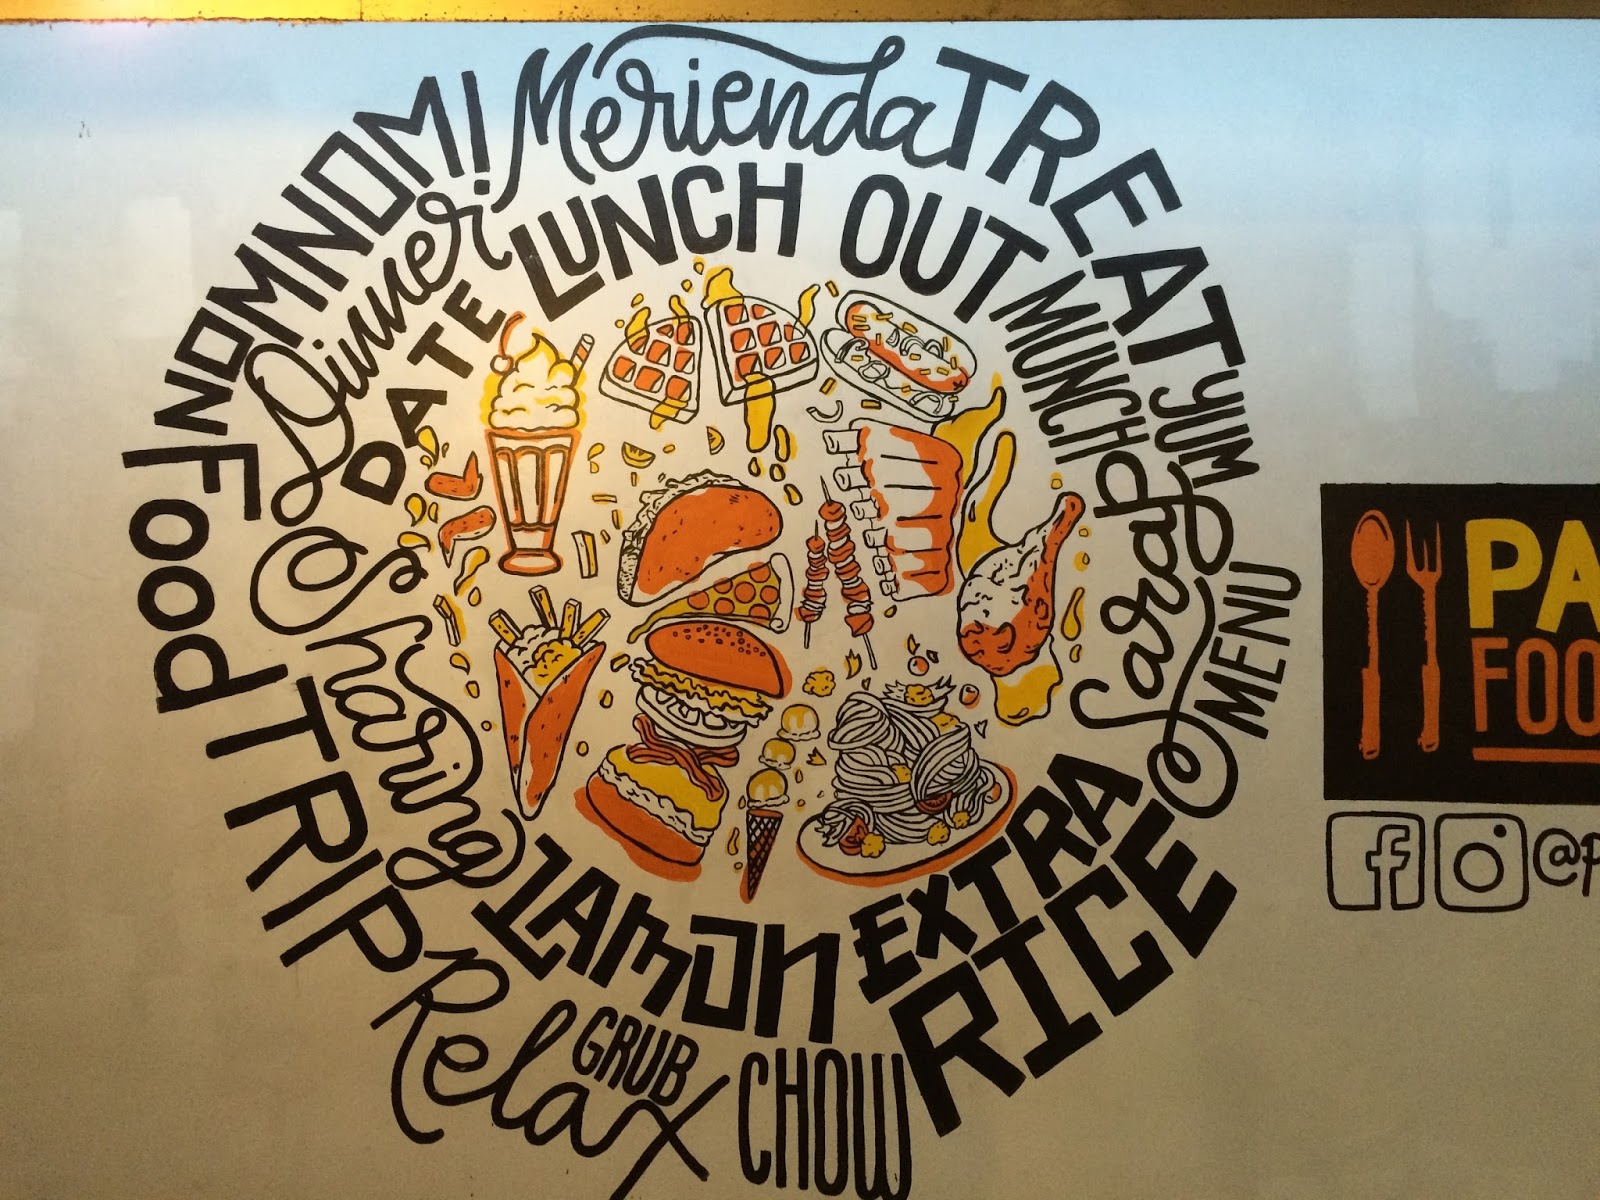 NOMNOMNOM!
Merienda
TREAT
YUM
Dinner
DATE
LUNCH OUT
MUNCH
Sarap
MENU
Sharing
Food TRIP
Relax
GRUB
LAMON
CHOW
EXTRA
RICE
PA
FOO
f
@p